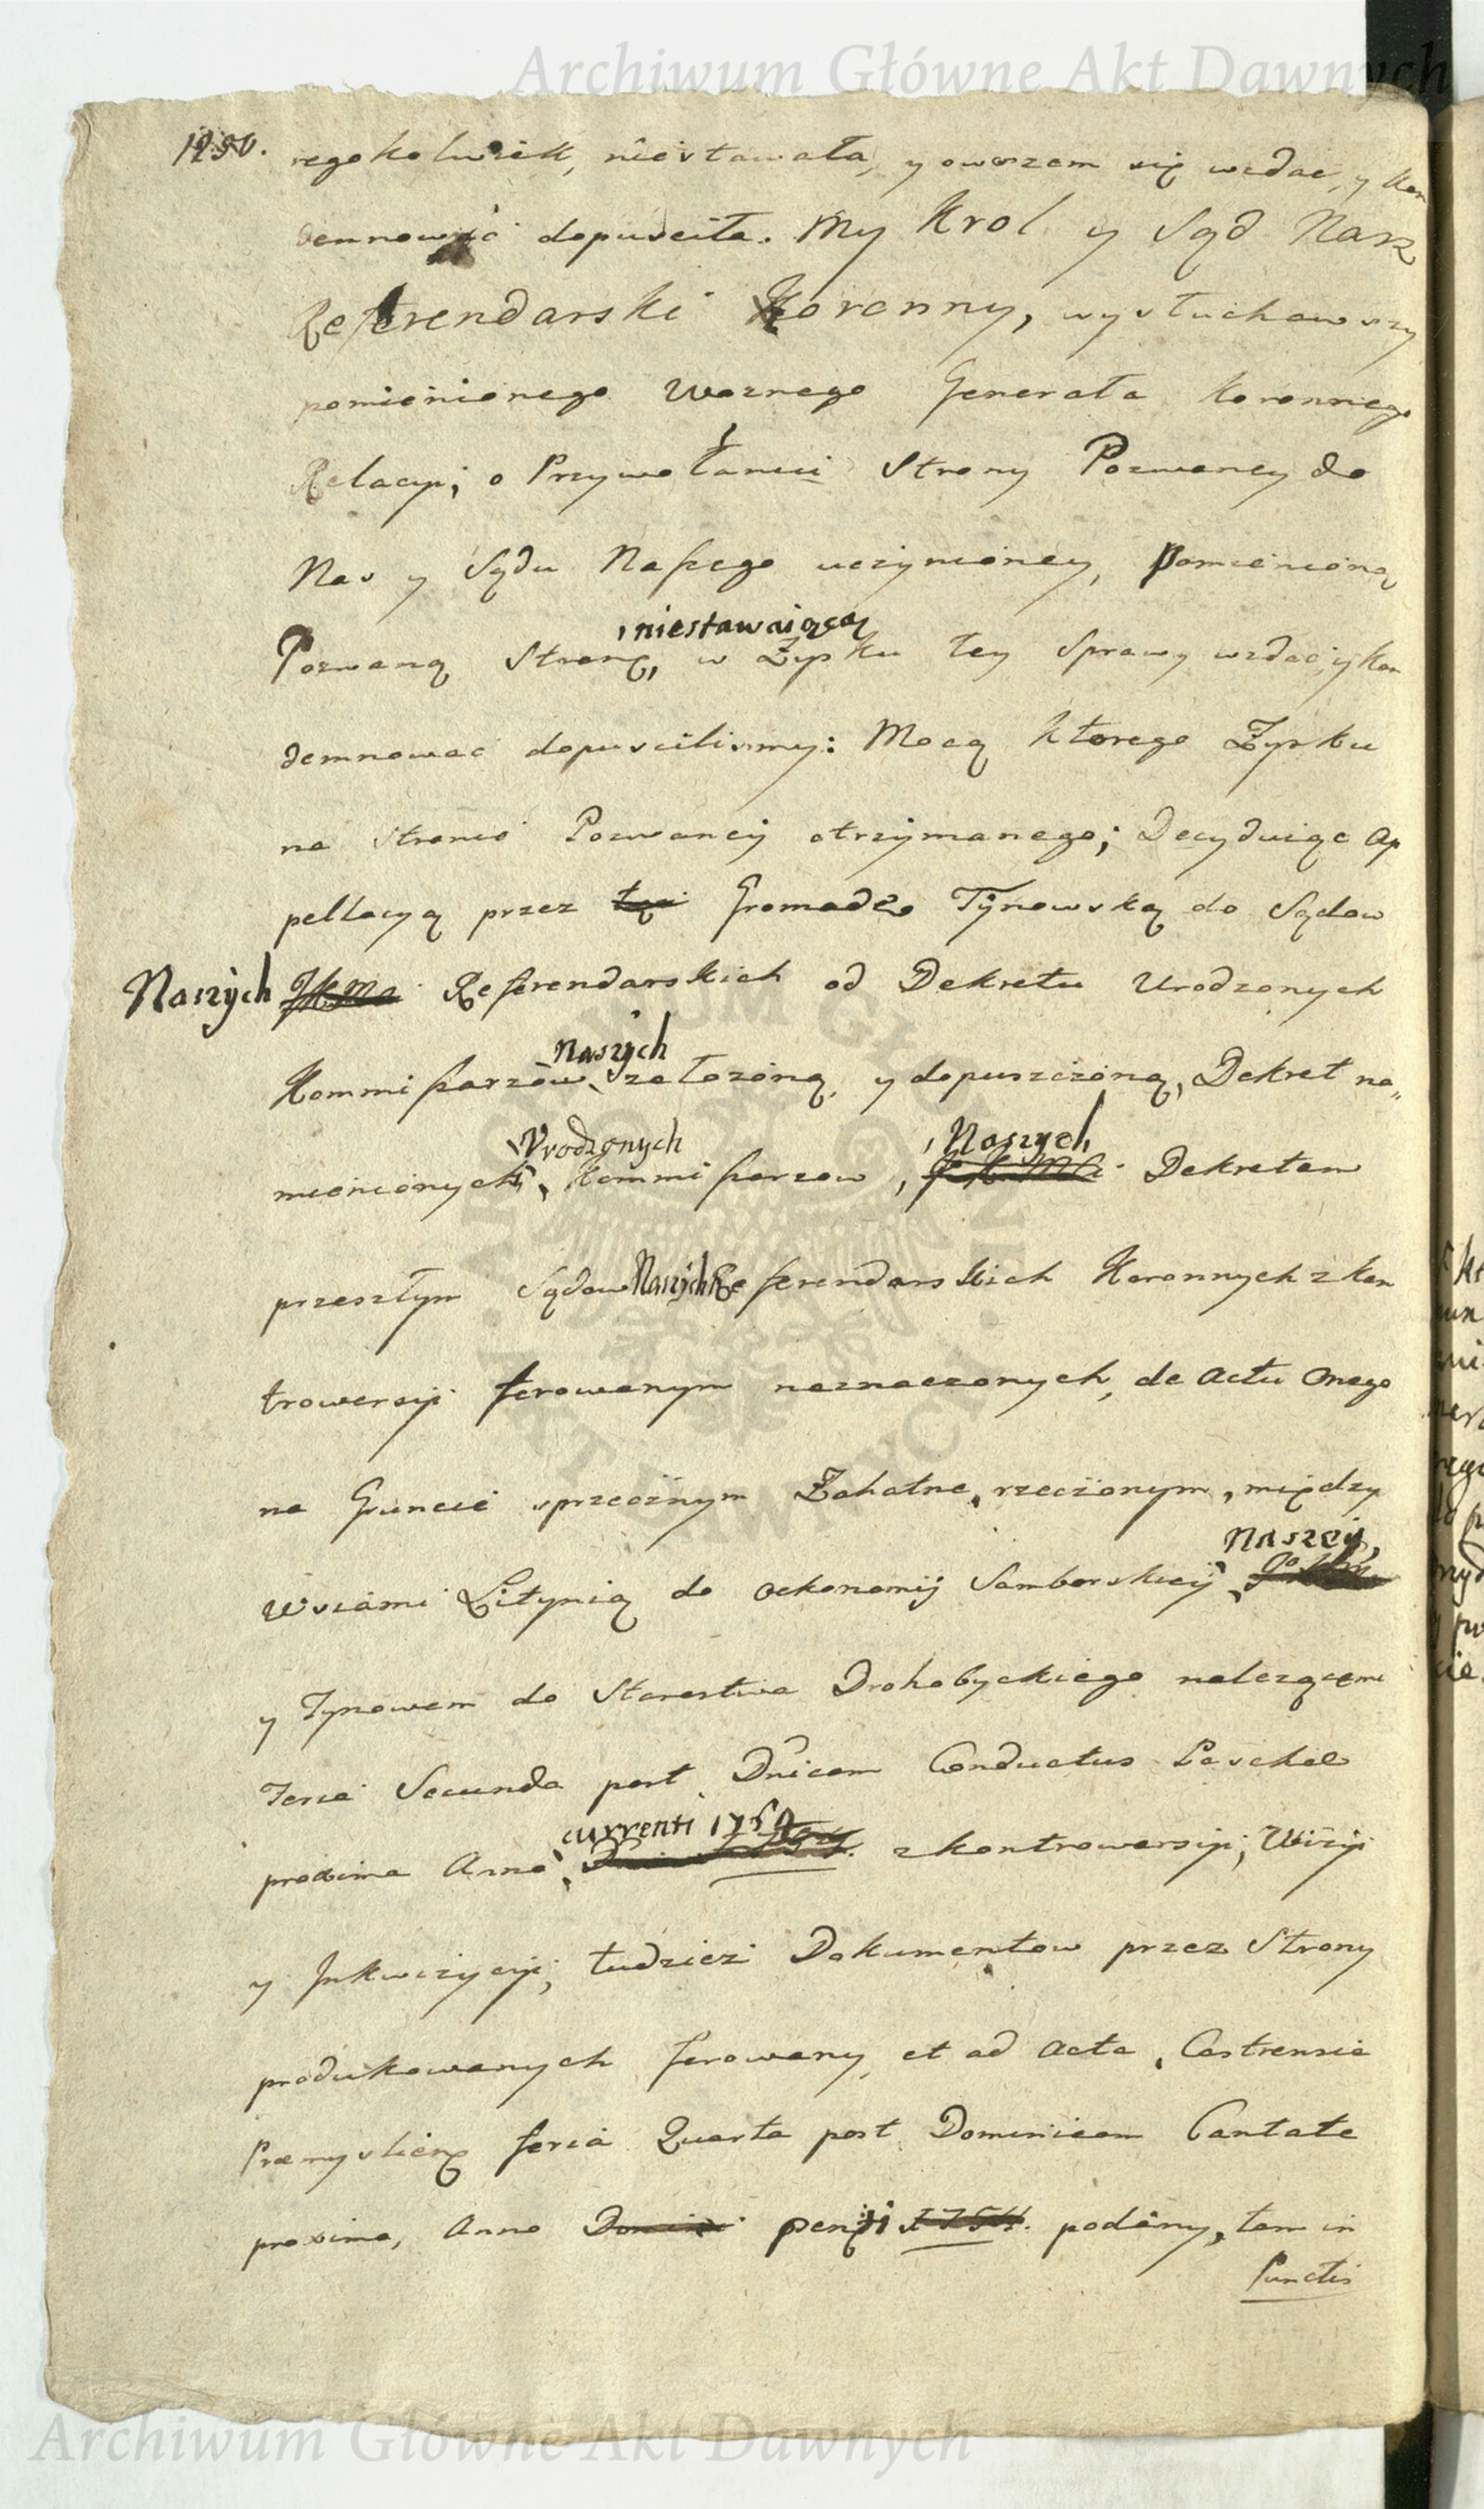 Archiwum Główne Akt Dawnych
1250.
regokolwiek, niestawała, y owszem się wzdać, y Kon
demnować dopusciła. My Krol y Sąd Nasz
Referendarski Koronny, wysłuchawszy
pomienionego Woznego Generała Koronnego
Relacyi, o Przywołaniu Strony Pozwaney do
Nas y Sądu Naszego uczynioney, Pomienioną
niestawaiącą
Pozwaną Stronę, w Zysku tey Sprawy wzdać, y Kon
demnować dopuscilismy: Mocą ktorego Zysku
na Stronie Pozwaney otrzymanego; Decyduiąc Ap
pellacyą przez Gromadę Tynowską do Sądow
Naszych JKMci Referendarskich od Dekretu Urodzonych
Naszych
Kommissarzow założoną, y dopuszczoną, Dekret na„
Urodzonych Naszych
mienionych Kommissarzow, JKMci Dekretem
przeszłym Sądow Naszych Referendarskich Koronnych z kon
trowersyi ferowanym naznaczonych, de Actu onego
na Gruncie sprzecznym Zahatne rzeczonym, między
Naszey,
Wsiami Litynią do Oekonomij Samborskiey
y Tynowem do Starostwa Drohobyckiego nalezącemi
Feria Secunda post Dnicam Conductus Paschae
currenti 1759
proxima Anno z kontrowersyi, Wizyi
y Inkwizycyi, tudziez Dokumentow przez Strony
produkowanych ferowany, et ad Acta Castrensia
Præmysliens feria Quarta post Dominicam Cantate
proxima, Anno Domini 1754. podany, tam in
Punctis
Archiwum Główne Akt Dawnych